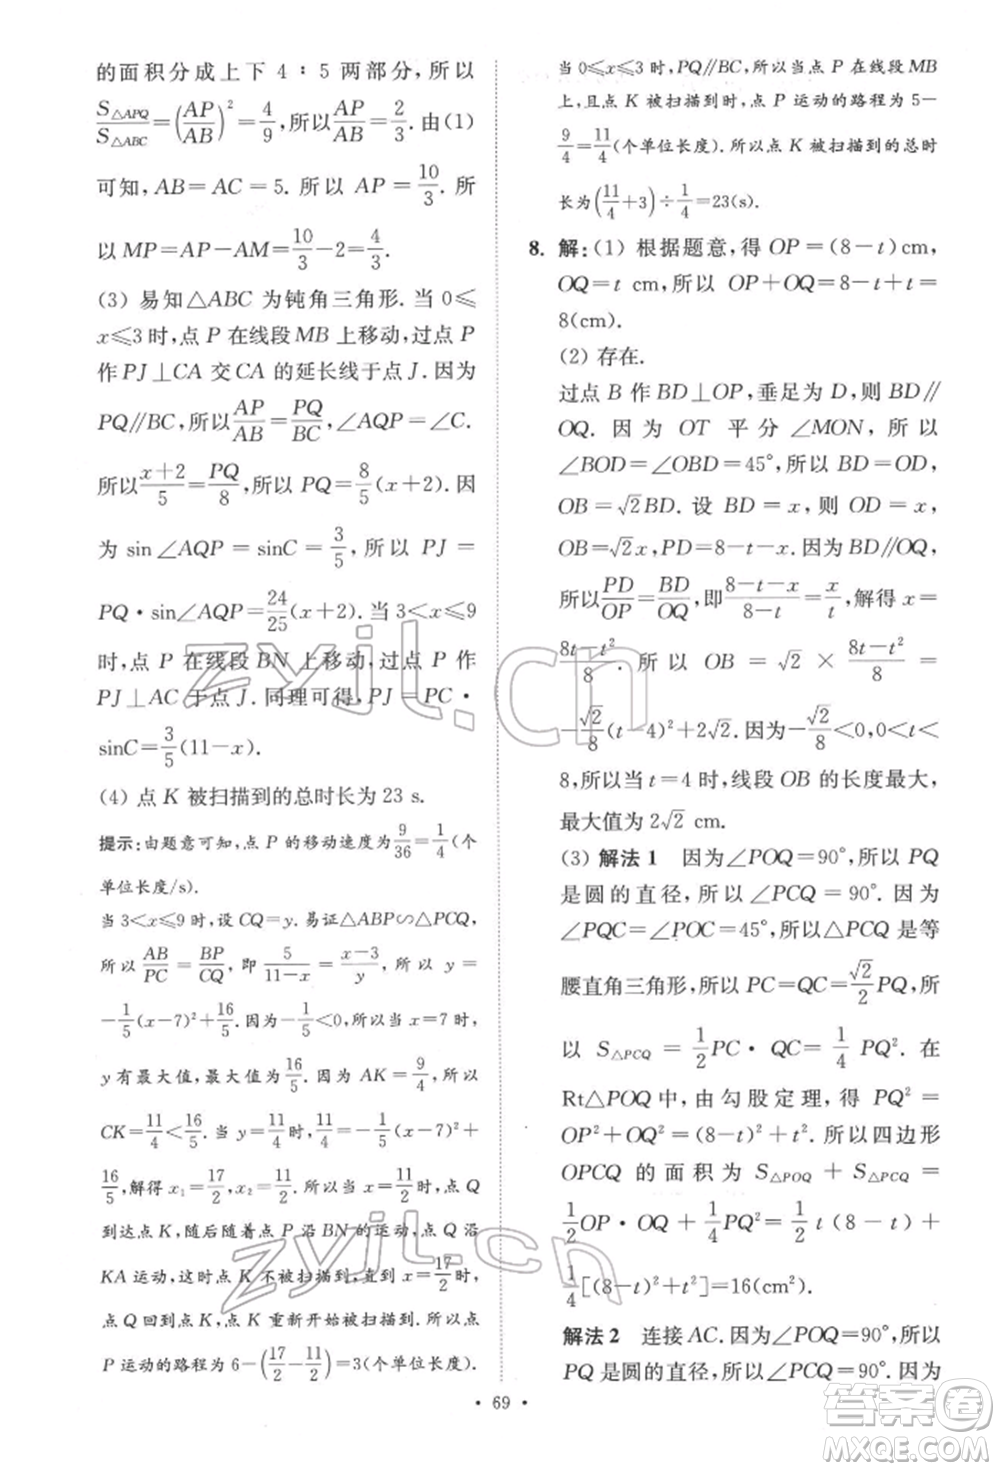 的面积分成上下 4∶5 两部分,所以
S△APQ/S△ABC=(AP/AB)²=4/9,所以AP/AB=2/3. 由(1)
可知, AB=AC=5. 所以 AP=10/3. 所
以 MP=AP-AM=10/3-2=4/3.
(3) 易知△ABC 为钝角三角形. 当 0≤
x≤3 时,点 P 在线段 MB 上移动,过点 P
作 PJ⊥CA 交 CA 的延长线于点 J. 因为
PQ∥BC,所以AP/AB=PQ/BC,∠AQP=∠C.
所以(x+2)/5=PQ/8,所以 PQ=8/5(x+2). 因
为 sin∠AQP=sinC=3/5,所以 PJ=
PQ·sin∠AQP=24/25(x+2). 当 3<x≤9
时,点 P 在线段 BN 上移动,过点 P 作
PJ⊥AC 于点 J. 同理可得, PJ=PC·
sinC=3/5(11-x).
(4) 点 K 被扫描到的总时长为 23 s.
提示:由题意可知,点 P 的移动速度为9/36=1/4(个
单位长度/s).
当 3<x≤9 时,设 CQ=y. 易证△ABP∽△PCQ,
所以AB/PC=BP/CQ,即5/(11-x)=(x-3)/y,所以 y=
-1/5(x-7)²+16/5. 因为-1/5<0,所以当 x=7 时,
y 有最大值,最大值为16/5. 因为 AK=9/4,所以
CK=11/4<16/5. 当 y=11/4时,11/4=-1/5(x-7)²+
16/5,解得 x₁=17/2, x₂=11/2. 所以当点 Q
到达点 K,随后随着点 P 沿 BN 的运动,点 Q 沿
KA 运动,这时点 K 不被扫描到,直到 x=17/2时,
点 Q 回到点 K,点 K 重新开始被扫描到. 所以
点 P 运动的路程为 6-(17/2-11/2)=3(个单位长度).
当 0≤x≤3 时,PQ∥BC,所以当点 P 在线段 MB
上,且点 K 被扫描到时,点 P 运动的路程为 5-
9/4=11/4(个单位长度). 所以点 K 被扫描的总时
长为(11/4+3)÷1/4=23(s).
8. 解:(1) 根据题意,得 OP=(8-t)cm,
OQ=t cm,所以 OP+OQ=8-t+t=
8(cm).
(2) 存在.
过点 B 作 BD⊥OP,垂足为 D,则 BD∥
OQ. 因为 OT 平分 ∠MON,所以
∠BOD=∠OBD=45°,所以 BD=OD,
OB=√2BD. 设 BD=x,则 OD=x,
OB=√2x,PD=8-t-x. 因为 BD∥OQ,
所以PD/OP=BD/OQ,即(8-t-x)/(8-t)=x/t,解得 x=
(8t-t²)/8. 所以 OB=√2×(8t-t²)/8=
-√2/8(t-4)²+2√2. 因为-√2/8<0,0<t<
8,所以当 t=4 时,线段 OB 的长度最大,
最大值为 2√2 cm.
(3) 解法 1 因为∠POQ=90°,所以 PQ
是圆的直径,所以∠PCQ=90°. 因为
∠PQC=∠POC=45°,所以△PCQ 是等
腰直角三角形,所以 PC=QC=√2/2PQ,所
以 S△PCQ=1/2PC·QC=1/4PQ². 在
Rt△POQ 中,由勾股定理,得 PQ²=
OP²+OQ²=(8-t)²+t². 所以四边形
OPCQ 的面积为 S△POQ+S△PCQ=
1/2OP·OQ+1/4PQ²=1/2t(8-t)+
1/4[(8-t)²+t²]=16(cm²).
解法 2 连接 AC. 因为∠POQ=90°,所以
PQ 是圆的直径,所以∠PCQ=90°. 因为
• 69 •
zyjl.cn
zyjl.cn
答案圈
MXQE.COM